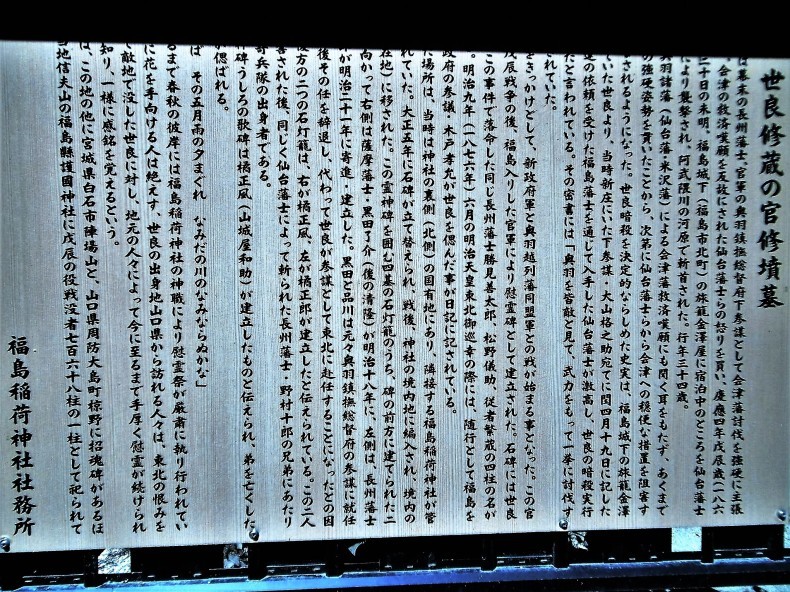 世良修蔵の官修墳墓
は幕末の長州藩士、官軍の奥羽鎮撫総督府下参謀として会津藩討伐を強硬に主張
会津の救済嘆願を反故にされた仙台藩士らの怒りを買い、慶應四年戊辰歳(一八六
二十日の未明、福島城下(福島市北町)の旅籠金澤屋に宿泊中のところを仙台藩士
により襲撃され、阿武隈川の河原で斬首された。行年三十四歳。
奥羽諸藩(仙台藩・米沢藩)による会津藩救済嘆願にも聞く耳をもたず、あくまで
の強硬姿勢を貫いたことから、次第に仙台藩士らから会津への穏便な措置を阻害す
されるようになった。世良暗殺を決定的ならしめた史実は、福島城下の旅籠金澤
いた世良より、当時新庄にいた下参謀・大山格之助宛てに閏四月十九日に記した
の依頼を受けた福島藩士を通じて入手した仙台藩士が激高し、世良の暗殺実行
だと言われている。その密書には「奥羽を皆敵と見て、武力をもって一挙に討伐す
れていた。
をきっかけとして、新政府軍と奥羽越列藩同盟軍との戦が始まる事となった。この官
戊辰戦争の後、福島入りした官軍により慰霊碑として建立された。石碑には世良
この事件で落命した同じ長州藩士勝見善太郎、松野儀助、従者繁蔵の四柱の名が
。明治九年(一八七六年)六月の明治天皇東北御巡幸の際には、随行として福島を
政府の参議・木戸孝允が世良を偲んだ事が日記に記されている。
た場所は、当時は神社の裏側(北側)の国有地にあり、隣接する福島稲荷神社が管
れていた。大正五年に石碑が立て替えられ、戦後、神社の境内地に編入され、境内の
在地)に移された。この霊神碑を囲む四基の石灯籠のうち、碑の前方に建てられた二
向かって右側は薩摩藩士・黒田了介(後の清隆)が明治十八年に、左側は、長州藩士
が明治二十一年に寄進・建立した。黒田と品川は元々奥羽鎮撫総督府の参謀に就任
後その任を辞退し、代わって世良が参謀として東北に赴任することになったとの因
後方の二つの石灯籠は、右が橘正風、左が橘正郎が建立したと伝えられている。この二人
害された後、同じく仙台藩士によって斬られた長州藩士・野村十郎の兄弟にあたり
奇兵隊の出身者である。
碑うしろの歌碑は橘正風(山城屋和助)が建立したものと伝えられ、弟を亡くした
が偲ばれる。
ば その五月雨の夕まぐれ なみだの川のみなみならぬかな」
るまで春秋の彼岸には福島稲荷神社の神職により慰霊祭が厳粛に執り行われてい
に花を手向ける人は絶えず、世良の出身地山口県から訪れる人々は、東北の恨みを
て敵地で没した世良に対し、地元の人々によって今に至るまで手厚く慰霊が続けられ
知り、一様に感銘を覚えるという。
は、この地の他に宮城県白石市陣場山と、山口県周防大島町椋野に招魂碑があるほ
当地信夫山の福島縣護國神社に戊辰の役戦没者七百六十八柱の一柱として祀られて
福島稲荷神社社務所